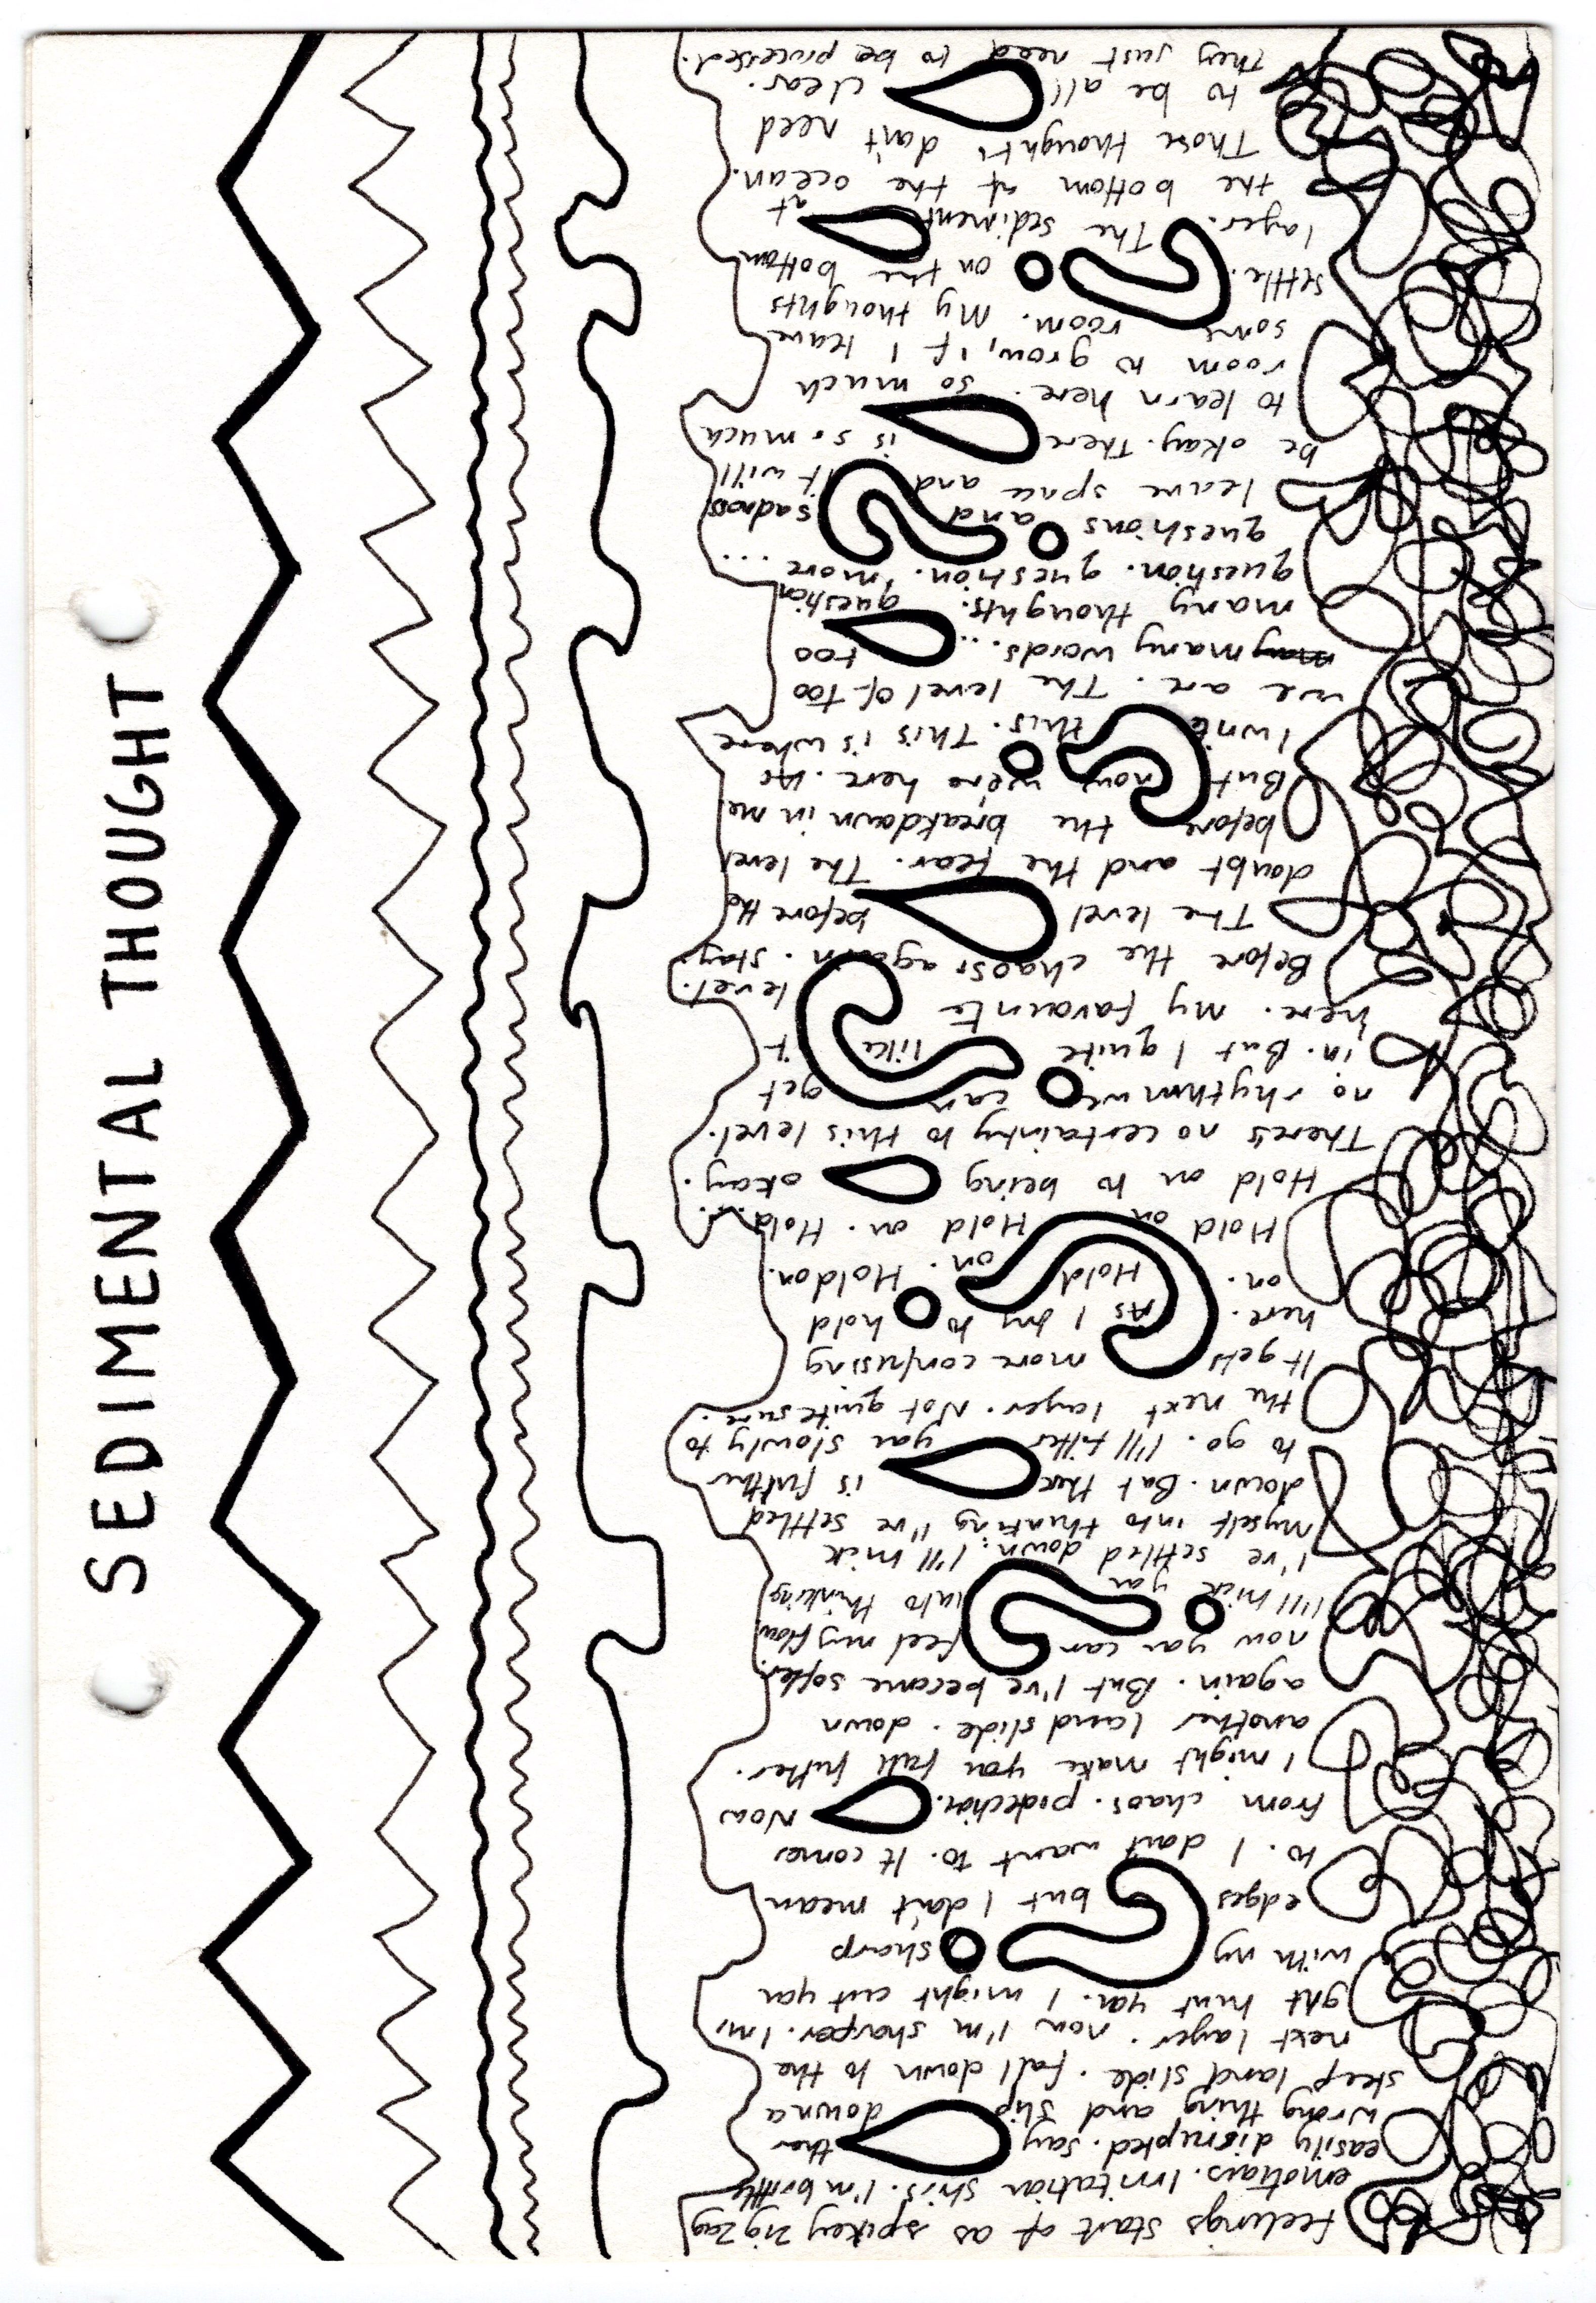 SEDIMENTAL THOUGHT
feelings start of as spikey zig zag
emotions. Irritation stirs. I'm brittle
easily disrupted. Say the
wrong thing and slip down a
steep land slide. fall down to the
next layer. now I'm sharper. I mi
ght hurt you. I might cut you
with my sharp
edges but I don't mean
to. I don't want to. It comes
from chaos. protection. Now
I might make you fall futher.
another land slide. down
again. But I've become softer.
now you can feel my flow
I'll trick you into thinking
I've settled down: I'll trick
myself into thinking I've settled
down. But there is futher
to go. I'll filter you slowly to
the next layer. Not quite sure.
It gets more confusing
here. As I try to hold
on. Hold on. Hold on.
Hold on Hold on. Hold...
Hold on to being okay.
There's no certainty to this level.
no rhythm we can get
in. But I quite like it
here. My favourite level.
Before the chaos again. Stay.
The level before the
doubt and the fear. The level
before the breakdown in me.
But now we're here. As
I write this. This is where
we are. The level of too
many many words... too
many thoughts. question
question. question. more ...
questions and sadness
leave space and it will
be okay. There is so much
to learn here. so much
room to grow, if I leave
some room. My thoughts
settle. on the bottom
layer. The sediment at
the bottom of the ocean.
Those thoughts don't need
to be all clear.
they just need to be processed.